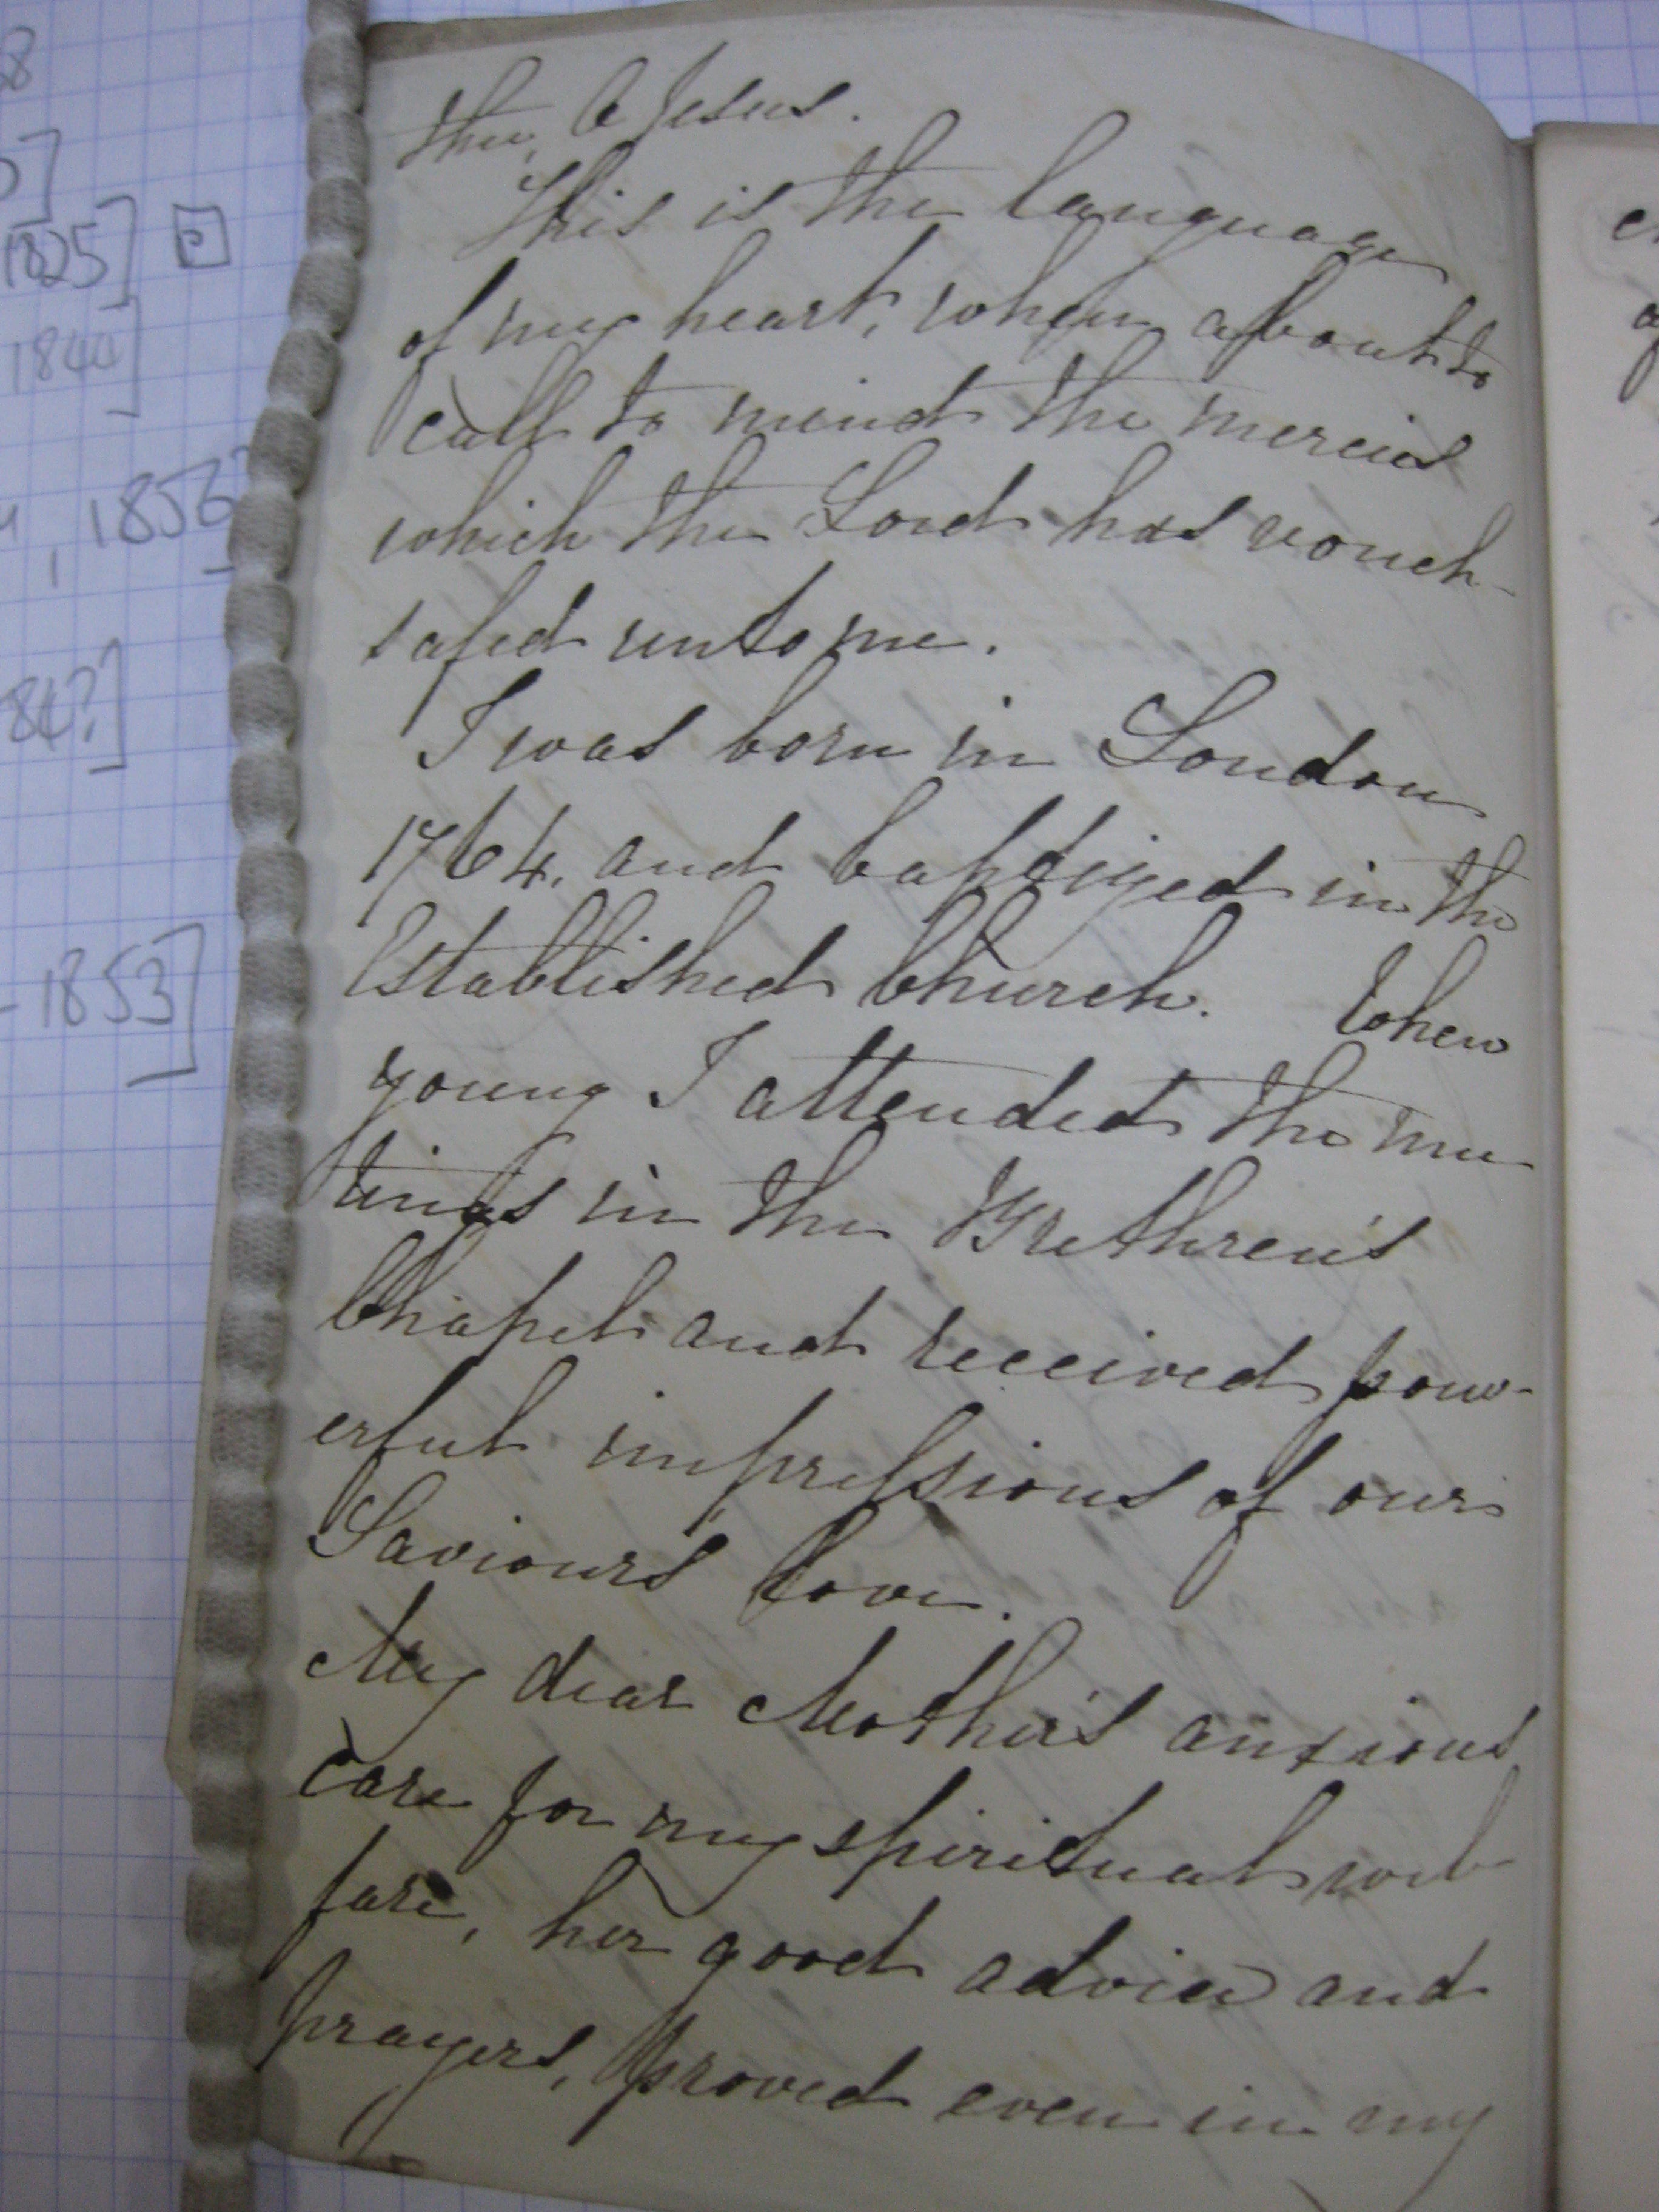 thee, O Jesus.
This is the language
of my heart, when about to
call to mind the mercies
which the Lord has vouch-
safed unto me.
I was born in London
1764, and baptized in the
Established Church. When
young I attended the mee
tings in the Brethren's
Chapel and received pow-
erful impressions of our
Saviour's love.
My dear Mother's anxious
care for my spiritual wel-
fare, her good advice and
prayers, proved even in my
8
5]
1825] P
1844]
, 1856
84?]
-1853]